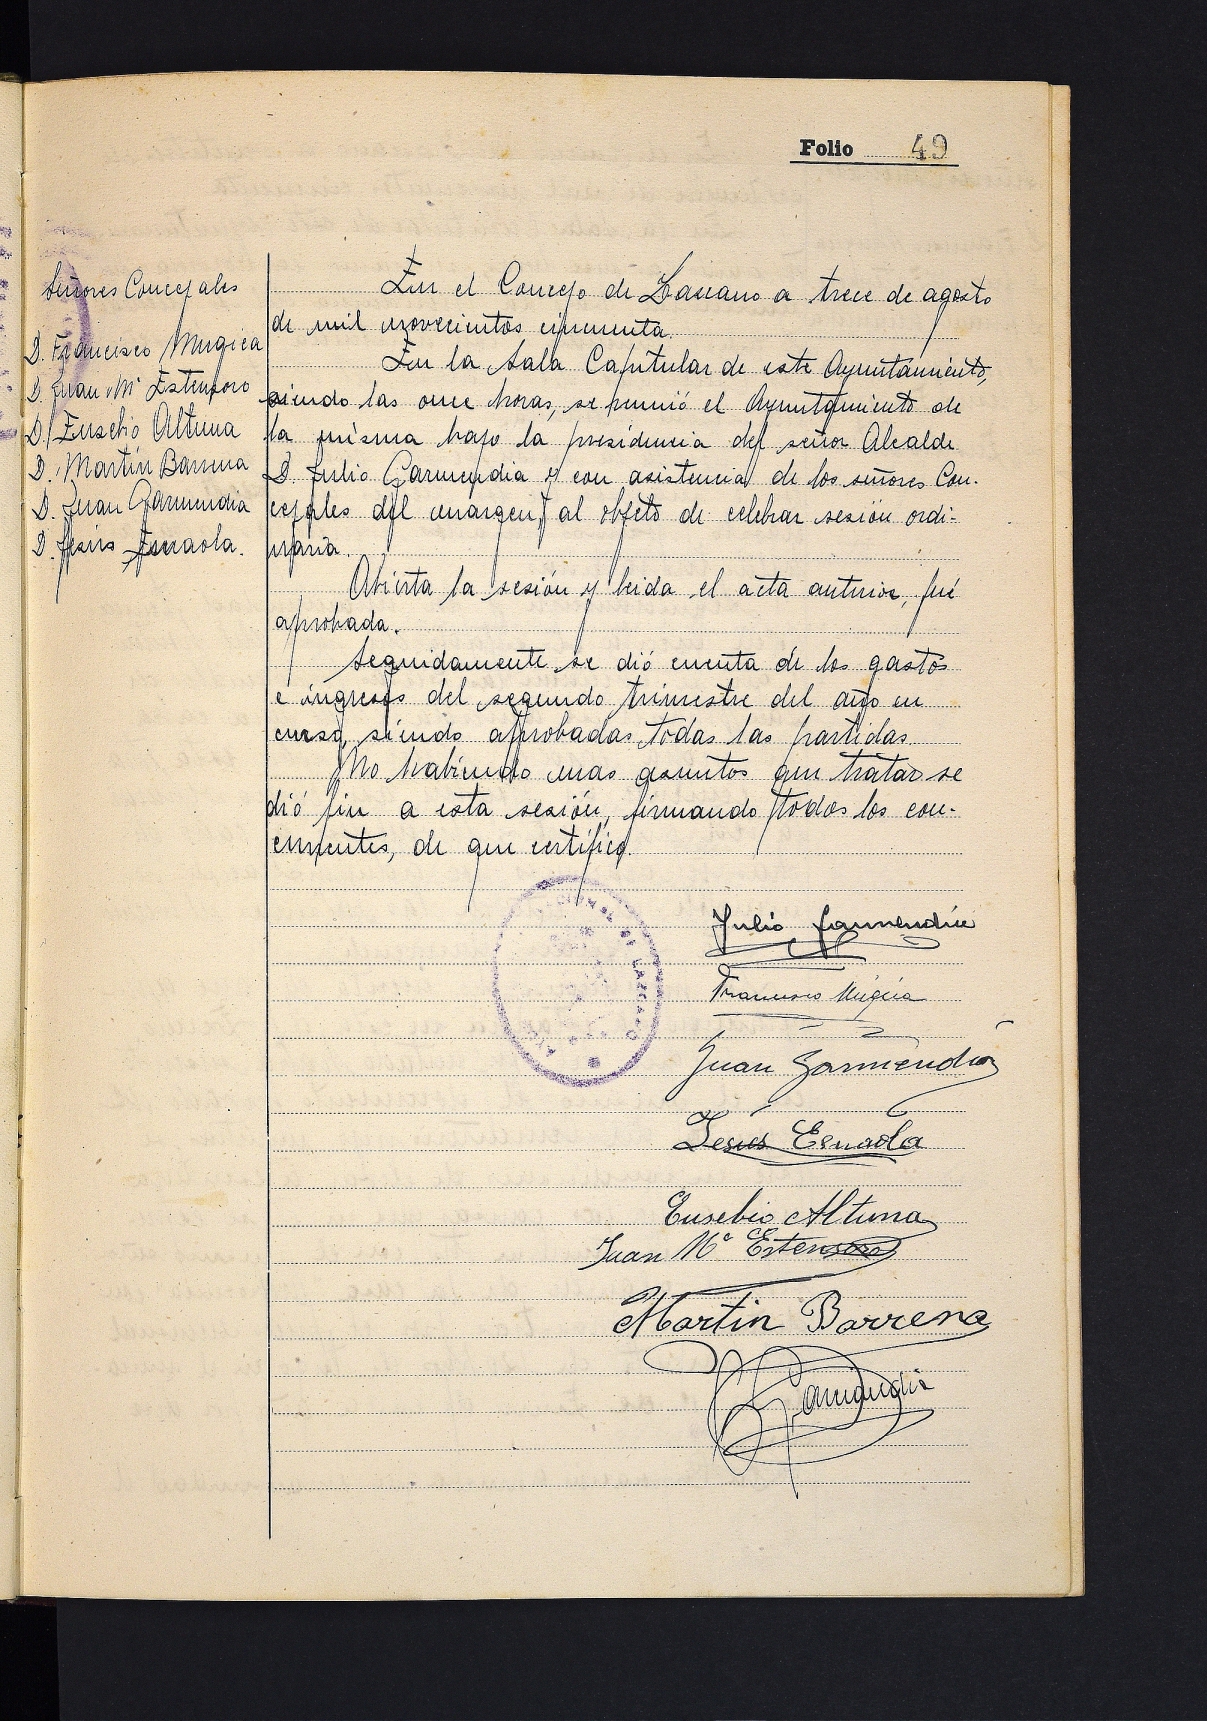 Folio 49
Señores Concejales
D. Francisco Mugica
D. Juan Mª Estensoro
D. Eusebio Altuna
D. Martín Barrena
D. Juan Garmendia
D. Jesús Esnaola.
En el Concejo de Lazcano a trece de agosto
de mil novecientos cincuenta.
En la Sala Capitular de este Ayuntamiento,
siendo las once horas, se reunió el Ayuntamiento de
la misma bajo la presidencia del señor Alcalde
D. Julio Garmendia y con asistencia de los señores Con-
cejales del margen, al objeto de celebrar sesión ordi-
naria.
Abierta la sesión y leida el acta anterior, fué
aprobada.
Seguidamente se dió cuenta de los gastos
e ingresos del segundo trimestre del año en
curso, siendo aprobadas todas las partidas
No habiendo mas asuntos que tratar se
dió fin a esta sesión, firmando todos los con-
currentes, de que certifico.
Julio Garmendia
Francisco Mugica
Juan Garmendia
Jesús Esnaola
Eusebio Altuna
Juan Mª Estensoro
Martin Barrena
Garmendia